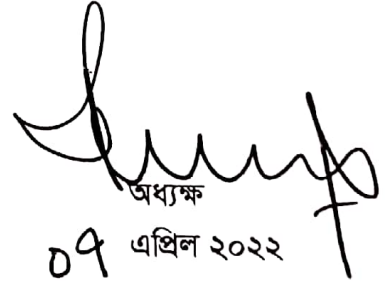 অধ্যক্ষ
০৭ এপ্রিল ২০২২